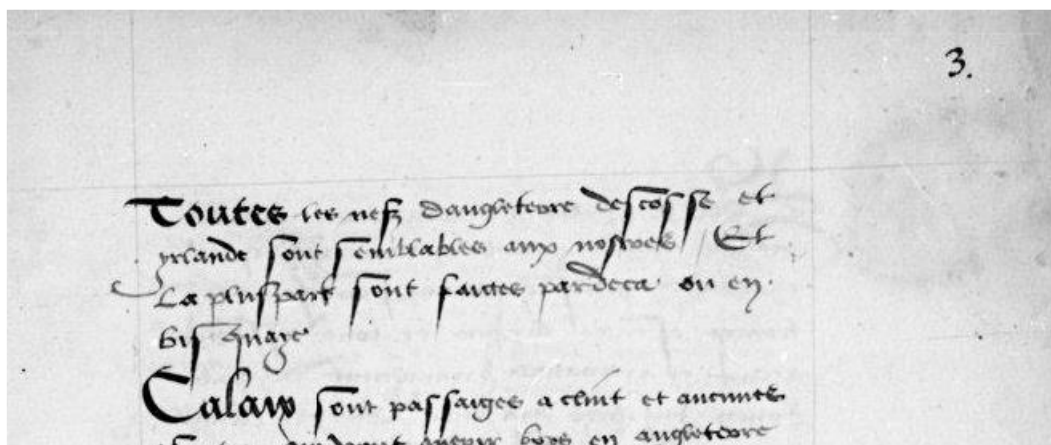 3.
Toutes les nefz dangleterre descosse et
yrlande sont semblables aux nostres / Et
La pluspart sont faictes pardeca ou en
bisquaye
Calaix sont passaiges a clint et aucunes
en angleterre